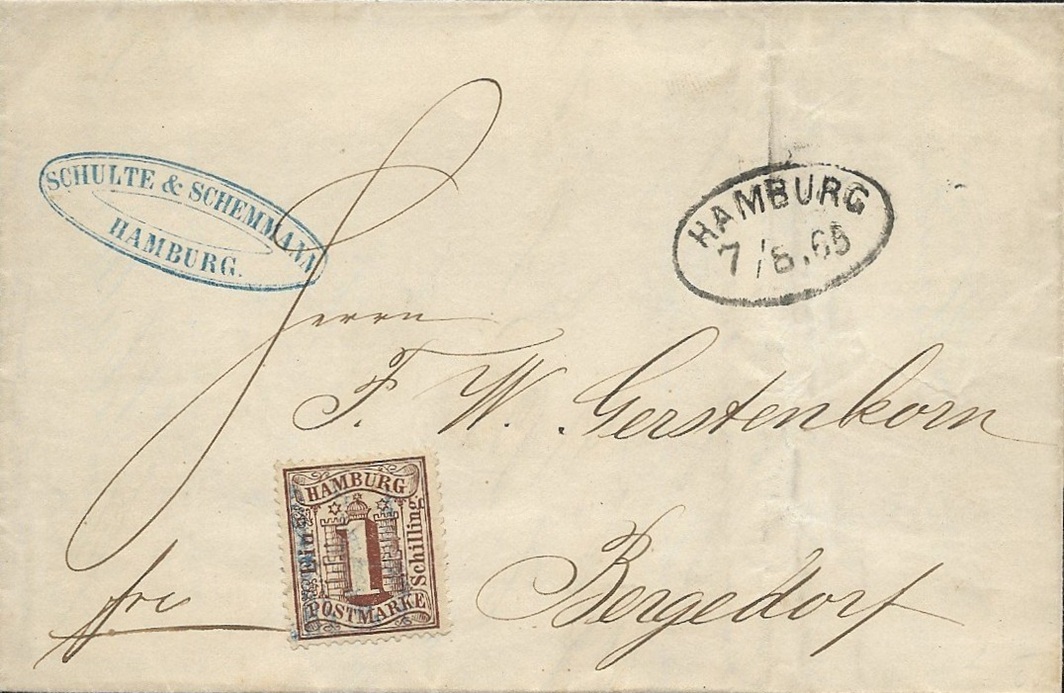 SCHULTE & SCHEMMANN
HAMBURG.
HAMBURG
7/8.65
Herrn
F. W. Gerstenkorn
Bergedorf
frei
HAMBURG
Ein
1
Schilling
POSTMARKE